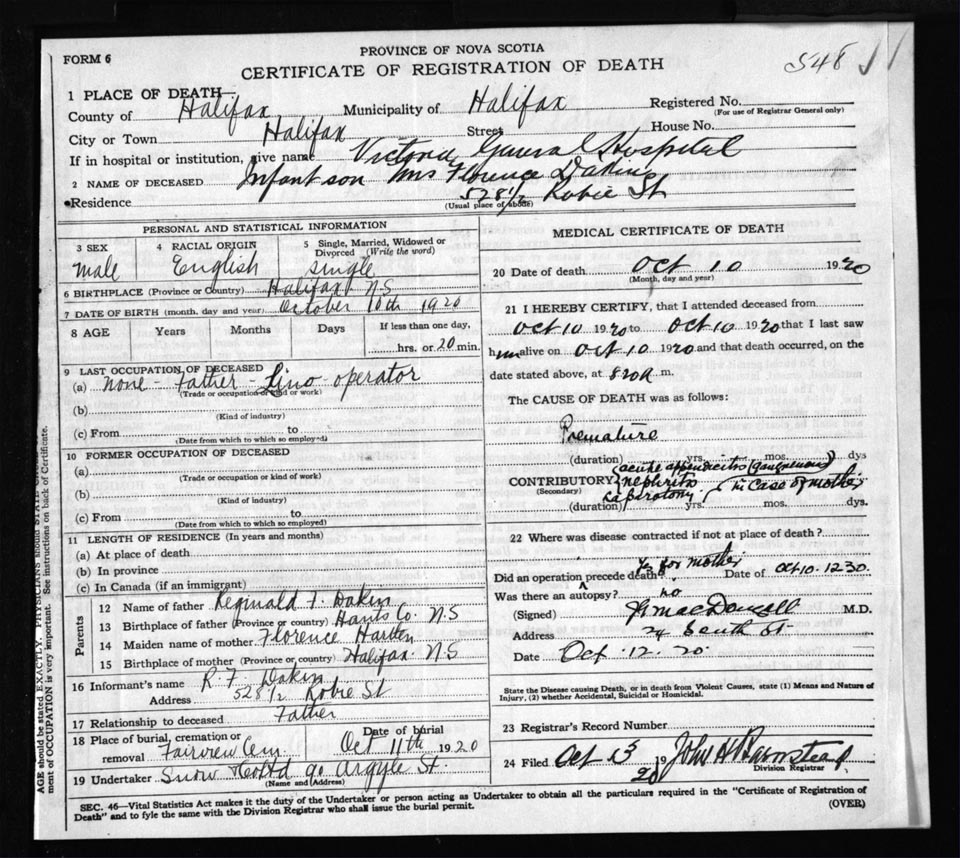 FORM 6
PROVINCE OF NOVA SCOTIA
CERTIFICATE OF REGISTRATION OF DEATH
548
1 PLACE OF DEATH
County of Halifax Municipality of Halifax Registered No.
(For use of Registrar General only)
City or Town Halifax Street House No.
If in hospital or institution, give name Victoria General Hospital
2 NAME OF DECEASED Infant son Mrs Florence Dakin
Residence 528 1/2 Robie St
(Usual place of abode)
PERSONAL AND STATISTICAL INFORMATION
3 SEX 4 RACIAL ORIGIN 5 Single, Married, Widowed or Divorced (Write the word)
male English single
6 BIRTHPLACE (Province or Country) Halifax N.S
7 DATE OF BIRTH (month, day and year) October 10th 1920
8 AGE Years Months Days If less than one day,
hrs. or 20 min.
9 LAST OCCUPATION OF DECEASED
(a) none - Father - Lino operator
(Trade or occupation or kind or work)
(b)
(Kind of industry)
(c) From to
(Date from which to which so employed)
10 FORMER OCCUPATION OF DECEASED
(a)
(Trade or occupation or kind of work)
(b)
(Kind of industry)
(c) From to
(Date from which to which so employed)
11 LENGTH OF RESIDENCE (In years and months)
(a) At place of death
(b) In province
(c) In Canada (if an immigrant)
Parents
12 Name of father Reginald F. Dakin
13 Birthplace of father (Province or country) Hants Co. N.S
14 Maiden name of mother Florence
15 Birthplace of mother (Province or country) Halifax N.S
16 Informant's name R. F. Dakin
Address 528 1/2 Robie St
17 Relationship to deceased Father
18 Place of burial, cremation or removal Fairview Cem Date of burial Oct 11th 1920
19 Undertaker Snow & Co Ltd 90 Argyle St.
(Name and Address)
MEDICAL CERTIFICATE OF DEATH
20 Date of death Oct 10 1920
(Month, day and year)
21 I HEREBY CERTIFY, that I attended deceased from
Oct 10 1920 to Oct 10 1920 that I last saw
him alive on Oct 10 1920 and that death occurred, on the
date stated above, at 820 a m.
The CAUSE OF DEATH was as follows:
Premature
(duration) yrs. mos. dys
CONTRIBUTORY acute appendicitis (gangrenous)
(Secondary) nephritis (in case of mother
laparotomy
(duration) yrs. mos. dys.
22 Where was disease contracted if not at place of death?
Did an operation precede death? Yes for mother Date of Oct 10. 12 30.
Was there an autopsy? no
(Signed) MacDougall M.D.
Address South St.
Date Oct. 12. 20.
State the Disease causing Death, or in death from Violent Causes, state (1) Means and Nature of Injury, (2) whether Accidental, Suicidal or Homicidal.
23 Registrar's Record Number
24 Filed Oct 13 1920 John H Barnstead
Division Registrar
SEC. 46—Vital Statistics Act makes it the duty of the Undertaker or person acting as Undertaker to obtain all the particulars required in the "Certificate of Registration of
Death" and to fyle the same with the Division Registrar who shall issue the burial permit.
(OVER)
AGE should be stated EXACTLY. PHYSICIANS should STATE
ment of OCCUPATION is very important. See instructions on back of Certificate.